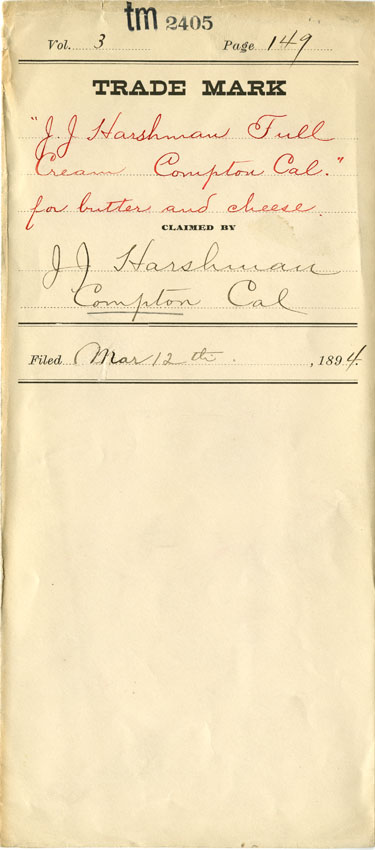 tm 2405
Vol. 3 Page 149
TRADE MARK
"J. J Harshman Full
Cream Compton Cal."
for butter and cheese
CLAIMED BY
J J Harshman
Compton Cal
Filed Mar 12 th. , 1894.